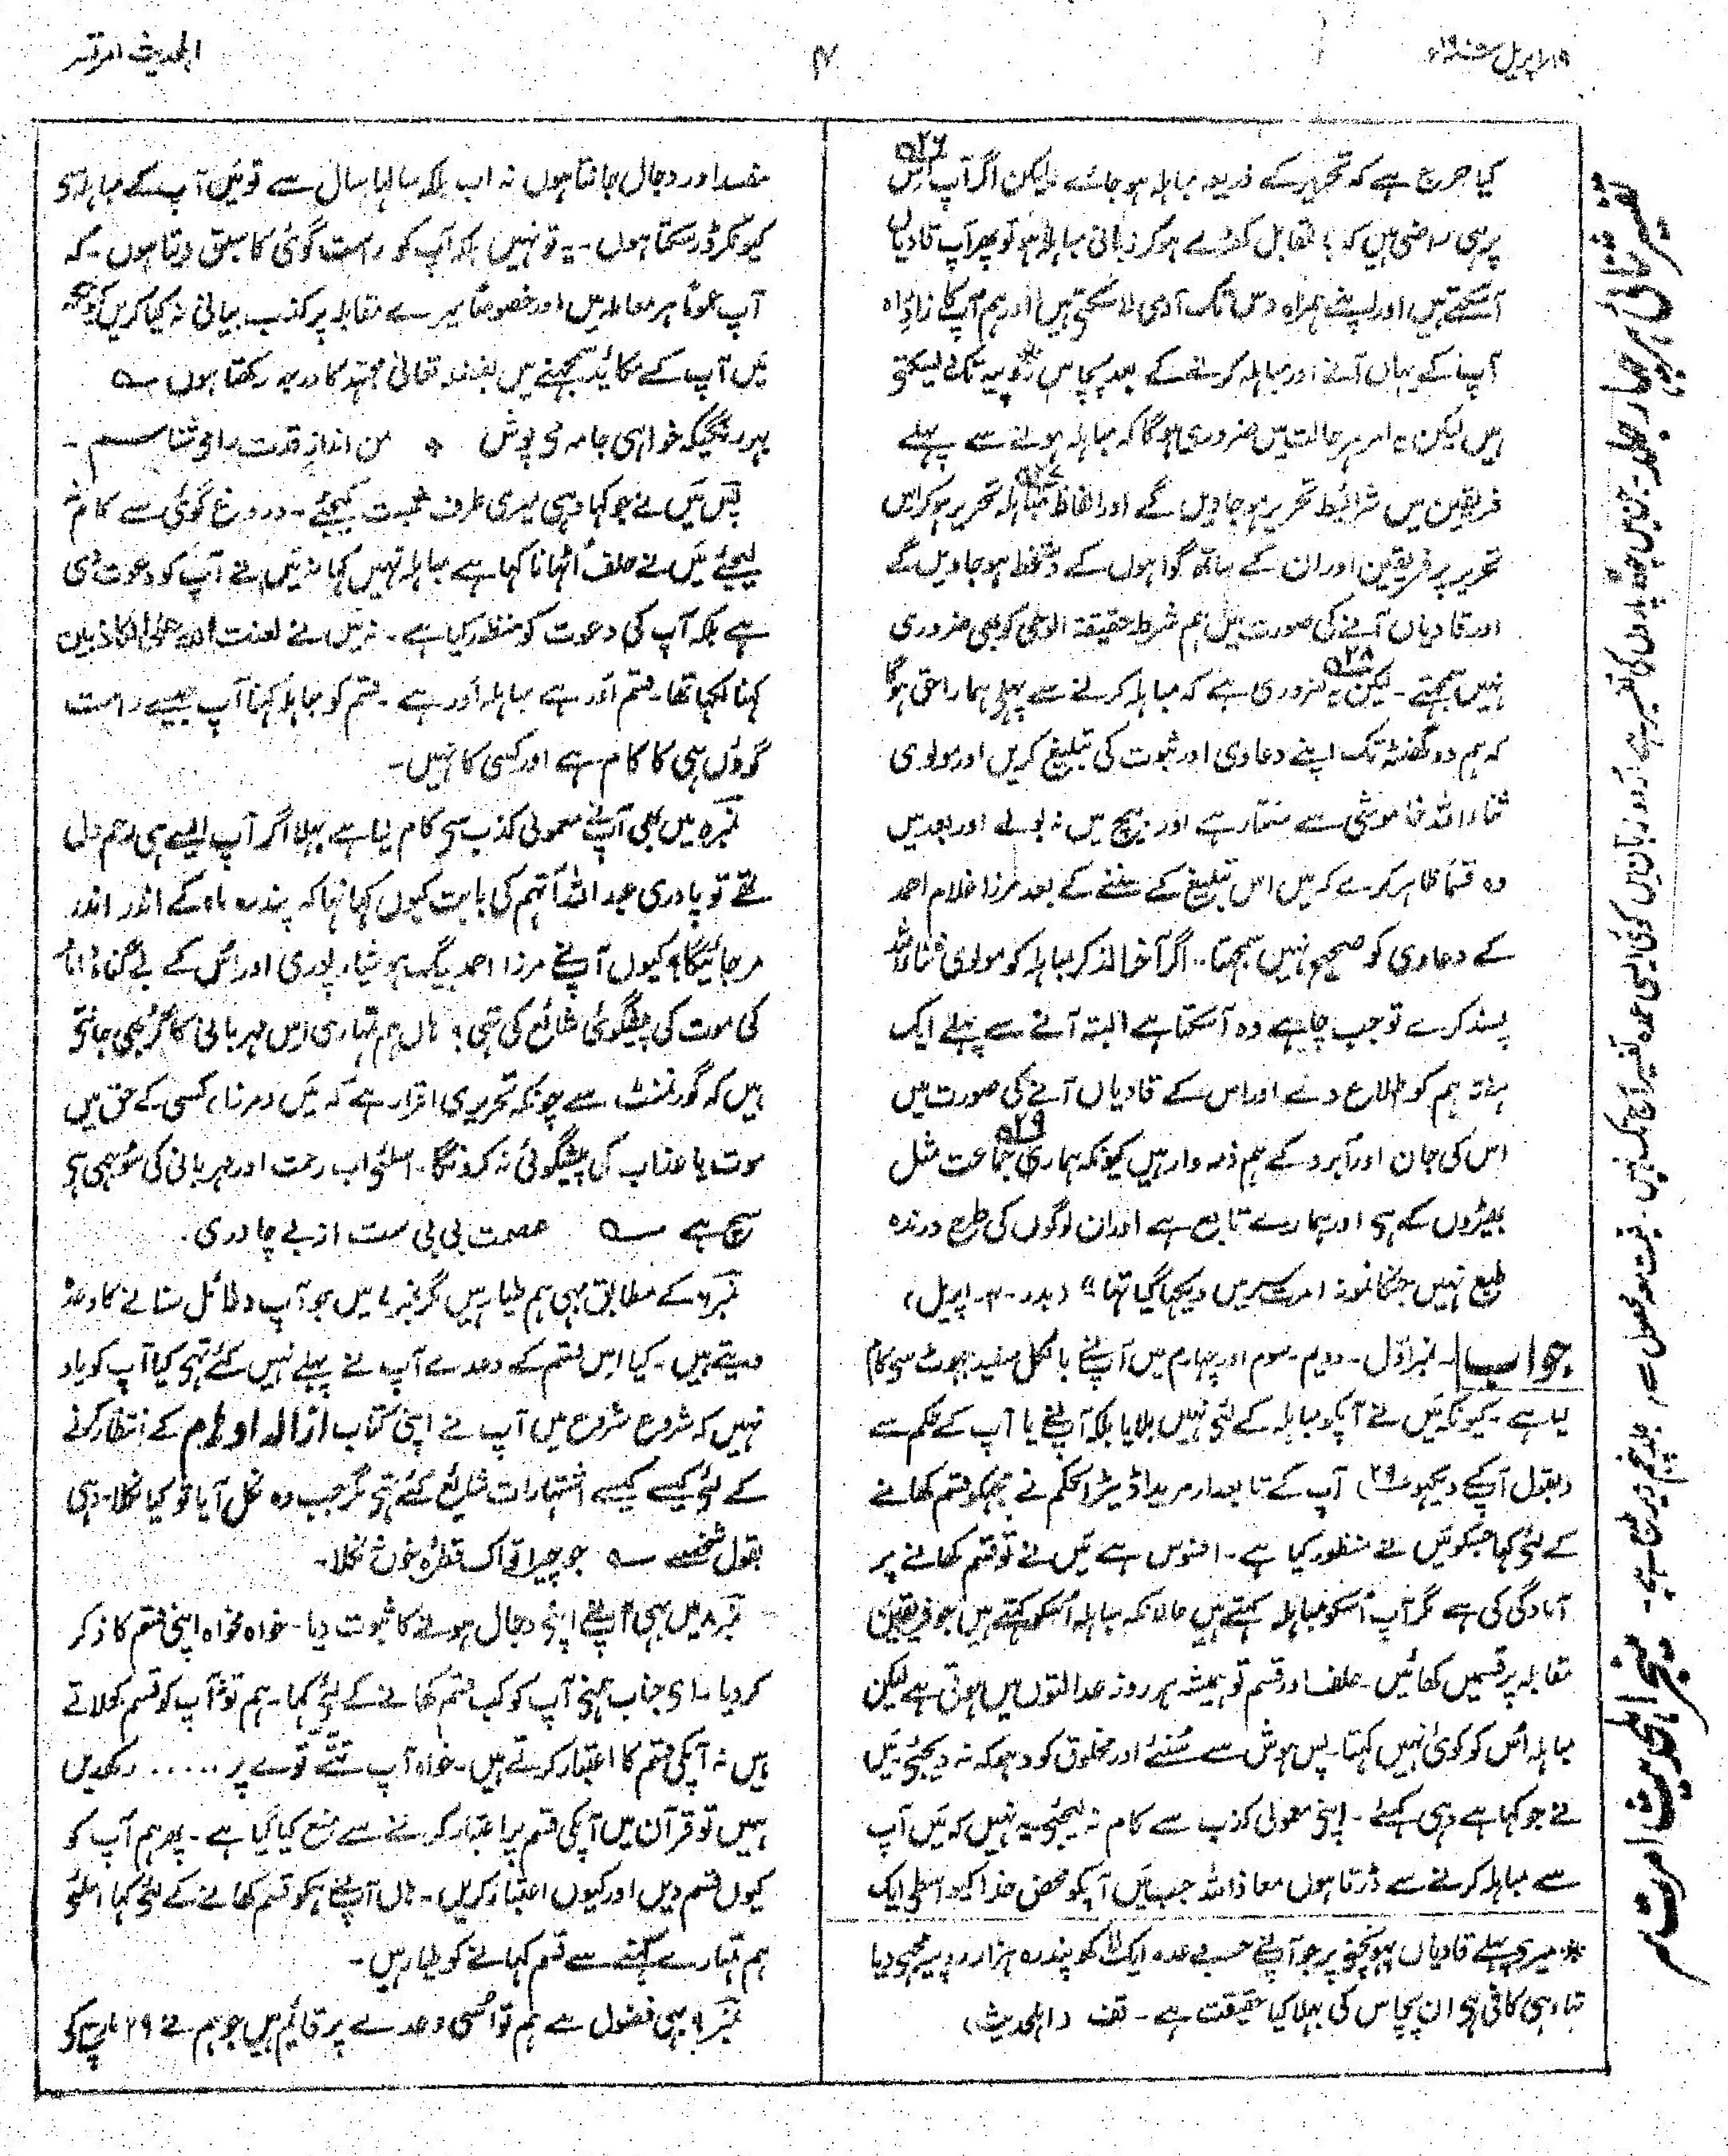 ۱۹ اپریل ۱۹۰۷ء
۴
اہلحدیث امرتسر
۵۲۶
کیا حرج ہے کہ تحریر کے ذریعہ مباہلہ ہو جائے لیکن اگر آپ اس
پر ہی راضی ہیں کہ بالمقابل کھڑے ہو کر زبانی مباہلہ ہو تو پھر آپ قادیان
آ سکتے ہیں اور اپنے ہمراہ دس تک آدمی لا سکتے ہیں اور ہم آپکا زاد راہ
آپکے یہاں آنے اور مباہلہ کرنے کے بعد پچاس روپیہ تک دے سکتے
ہیں لیکن یہ امر ہر حالت میں ضروری ہوگا کہ مباہلہ ہونے سے پہلے
۵۲۷
فریقین میں شرائط تحریر ہو جاویں گے اور الفاظ مباہلہ تحریر ہو کر اس
تحریر پر فریقین اور ان کے ساتھ گواہوں کے دستخط ہو جاویں گے
اور قادیان آنے کی صورت میں ہم شرط حقیقۃ الوحی کو بھی ضروری
۵۲۸
نہیں سمجھتے۔ لیکن یہ ضروری ہے کہ مباہلہ کرنے سے پہلے ہمارا حق ہوگا
کہ ہم دو گھنٹہ تک اپنے دعاوی اور ثبوت کی تبلیغ کریں اور مولوی
ثناء اللہ خاموشی سے سنتا رہے اور بیچ میں نہ بولے اور بعد میں
وہ قسماً ظاہر کرے کہ میں اس تبلیغ کے سننے کے بعد مرزا غلام احمد
کے دعاوی کو صحیح نہیں سمجھتا۔ اگر آخر الذکر مباہلہ کو مولوی ثناء اللہ
پسند کرے تو جب چاہے وہ آ سکتا ہے البتہ آنے سے پہلے ایک
ہفتہ ہم کو اطلاع دے اور اس کے قادیان آنے کی صورت میں
۵۲۹
اس کی جان اور آبرو کے ہم ذمہ وار ہیں کیونکہ ہماری جماعت مثل
بھیڑوں کے ہے اور ہمارے تابع ہے اور ان لوگوں کی طرح درندہ
طبع نہیں جنکا نمونہ امرتسر میں دیکھا گیا تھا" (بدر۔ ۴۔ اپریل)
جواب۔ نمبر اول۔ دوم۔ سوم اور چہارم میں آپنے بالکل سفید جھوٹ سے کام
لیا ہے۔ کیونکہ میں نے آپکو مباہلہ کے لئے نہیں بلایا بلکہ آپنے یا آپ کے حکم سے
(بقول آپکے دیکھو ۲۹) آپ کے تابعدار مرید اڈیٹر الحکم نے مجھکو قسم کھانے
کے لئے کہا جسکو میں نے منظور کیا ہے۔ افسوس ہے میں نے تو قسم کھانے پر
آمادگی کی ہے مگر آپ اسکو مباہلہ کہتے ہیں حالانکہ مباہلہ اسکو کہتے ہیں جو فریقین
مقابلہ پر قسمیں کھائیں۔ حلف اور قسم تو ہمیشہ ہر روز عدالتوں میں ہوتی ہے لیکن
مباہلہ اس کو کوئی نہیں کہتا۔ پس ہوش سے سنئے اور مخلوق کو دہوکہ نہ دیجئے میں
نے جو کہا ہے وہی کہئے۔ اپنی معمولی کذب سے کام نہ لیجئے یہ نہیں کہ میں آپ
سے مباہلہ کرنے سے ڈرتا ہوں معاذ اللہ جب میں آپکو محض خدا کیواسطے ایک
* میرے پہلے قادیان پہونچنے پر جو آپنے حسب وعدہ ایک لاکھ پندرہ ہزار روپیہ مجھے دیا
تھا وہی کافی ہے ان پچاس کی بھلا کیا حقیقت ہے۔ تف (اہلحدیث)
مفسد اور دجال جانتا ہوں نہ اب بلکہ سالہا سال سے تو میں آپ کے مباہلہ سے
کیونکر ڈر سکتا ہوں۔ یہ تو نہیں بلکہ آپ کو راست گوئی کا سبق دیتا ہوں۔ کہ
آپ عموماً ہر معاملہ میں اور خصوصاً میرے مقابلہ پر کذب بیانی نہ کیا کریں کیونکہ
میں آپ کے مکائد سمجھنے میں بفضلہ تعالیٰ مجتہد کا درجہ رکھتا ہوں ؎
بہر رنگیکہ خواہی جامہ می پوش ٭ من انداز قدت را می شناسم۔
پس میں نے جو کہا وہی میری طرف نسبت کیجئے۔ دروغ گوئی سے کام نہ
لیجئے میں نے حلف اُٹہانا کہا ہے مباہلہ نہیں کہا نہ میں نے آپ کو دعوت دی
ہے بلکہ آپ کی دعوت کو منظور کیا ہے۔ نہ میں نے لعنت اللہ علی الکاذبین
کہنا لکھا تھا۔ قسم اَور ہے مباہلہ اَور ہے۔ قسم کو مباہلہ کہنا آپ جیسے راست
گوؤں ہی کا کام ہے اور کسی کا نہیں۔
نمبر ۵ میں بھی آپنے معمولی کذب سے کام لیا ہے بھلا اگر آپ ایسے ہی رحم دل
تھے تو پادری عبد اللہ آتہم کی بابت کیوں کہا تھا کہ پندرہ ماہ کے اندر اندر
مر جائیگا؟ کیوں آپنے مرزا احمد بیگ ہوشیارپوری اور اُس کے بے گناہ داماد
کی موت کی پیشگوئی شائع کی تہی؟ ہاں ہم تمہاری اس مہربانی کا گُر بھی جانتے
ہیں کہ گورنمنٹ سے چونکہ تحریری اقرار ہے کہ میں (مرزا) کسی کے حق میں
موت یا عذاب کی پیشگوئی نہ کرونگا۔ اسلئے اب رحمت اور مہربانی کی سُوجھی ہے
سچ ہے ؎ عصمت بی بی ست از بے چادری۔
نمبر ۶ کے مطابق بہی ہم طیار ہیں مگر نمبر ۷ میں جو آپ دلائل سنانے کا وعدہ
دیتے ہیں۔ کیا اس قسم کے وعدے آپ نے پہلے نہیں کئے تہے کیا آپ کو یاد
نہیں کہ شروع شروع میں آپ نے اپنی کتاب ازالہ اوہام کے انتظار کرنے
کے لئے کیسے کیسے اشتہارات شائع کئے تہے مگر جب وہ نکل آیا تو کیا نکلا۔ وہی
بقول شخصے ؎ جو چیرا تو اک قطرۂ خون نکلا۔
نمبر ۸ میں بہی آپنے اپنی دجال ہونے کا ثبوت دیا۔ خواہ مخواہ اپنی قسم کا ذکر
کر دیا۔ اے جناب ہمنے آپ کو کب قسم کھانے کے لئے کہا۔ ہم تو نہ آپ کو قسم کھلاتے
ہیں نہ آپکی قسم کا اعتبار کرتے ہیں۔ خواہ آپ تتے توے پر ..... رکھدیں
ہمیں تو قرآن میں آپکی قسم پر اعتبار کرنے سے منع کیا گیا ہے۔ پھر ہم آپ کو
کیوں قسم دیں اور کیوں اعتبار کریں۔ ہاں آپنے ہمکو قسم کھانے کے لئے کہا اسلئے
ہم تمہارے کہنے سے قسم کہانے کو طیار ہیں۔
نمبر ۹ بہی فضول ہے ہم تو اُسی وعدے پر قائم ہیں جو ہم نے ۲۹ مارچ کو
تفسیر ثنائی ہر چہار جلد۔ جن میں چودہ پاروں کی تفسیر ہے اردو زبان میں کوئی ایسی عمدہ تفسیر آج تک نہیں۔ قیمت مع محصول جلد پنجم زیر طبع ہے۔ منیجر اہلحدیث امرتسر